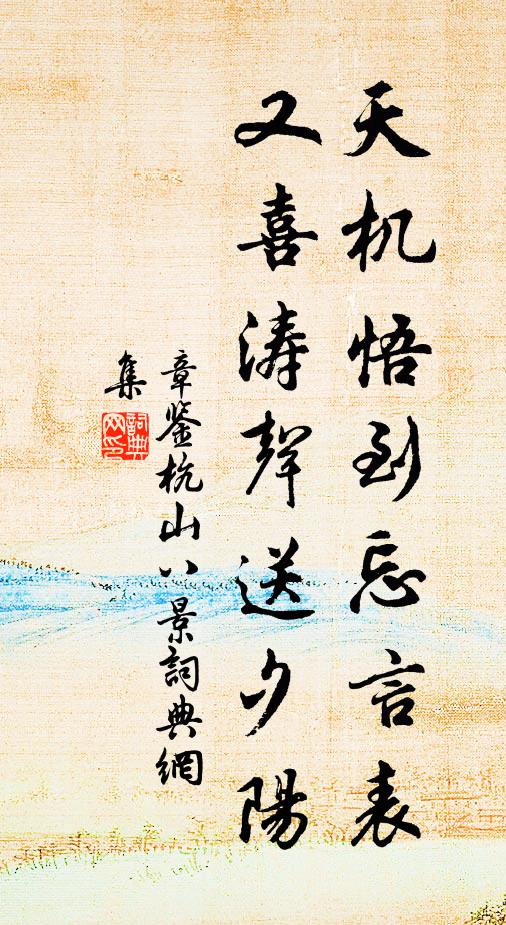 天机悟到忘言表
又喜涛聲送夕陽
章鉴杭山八景詞典網
集
詞典
网印